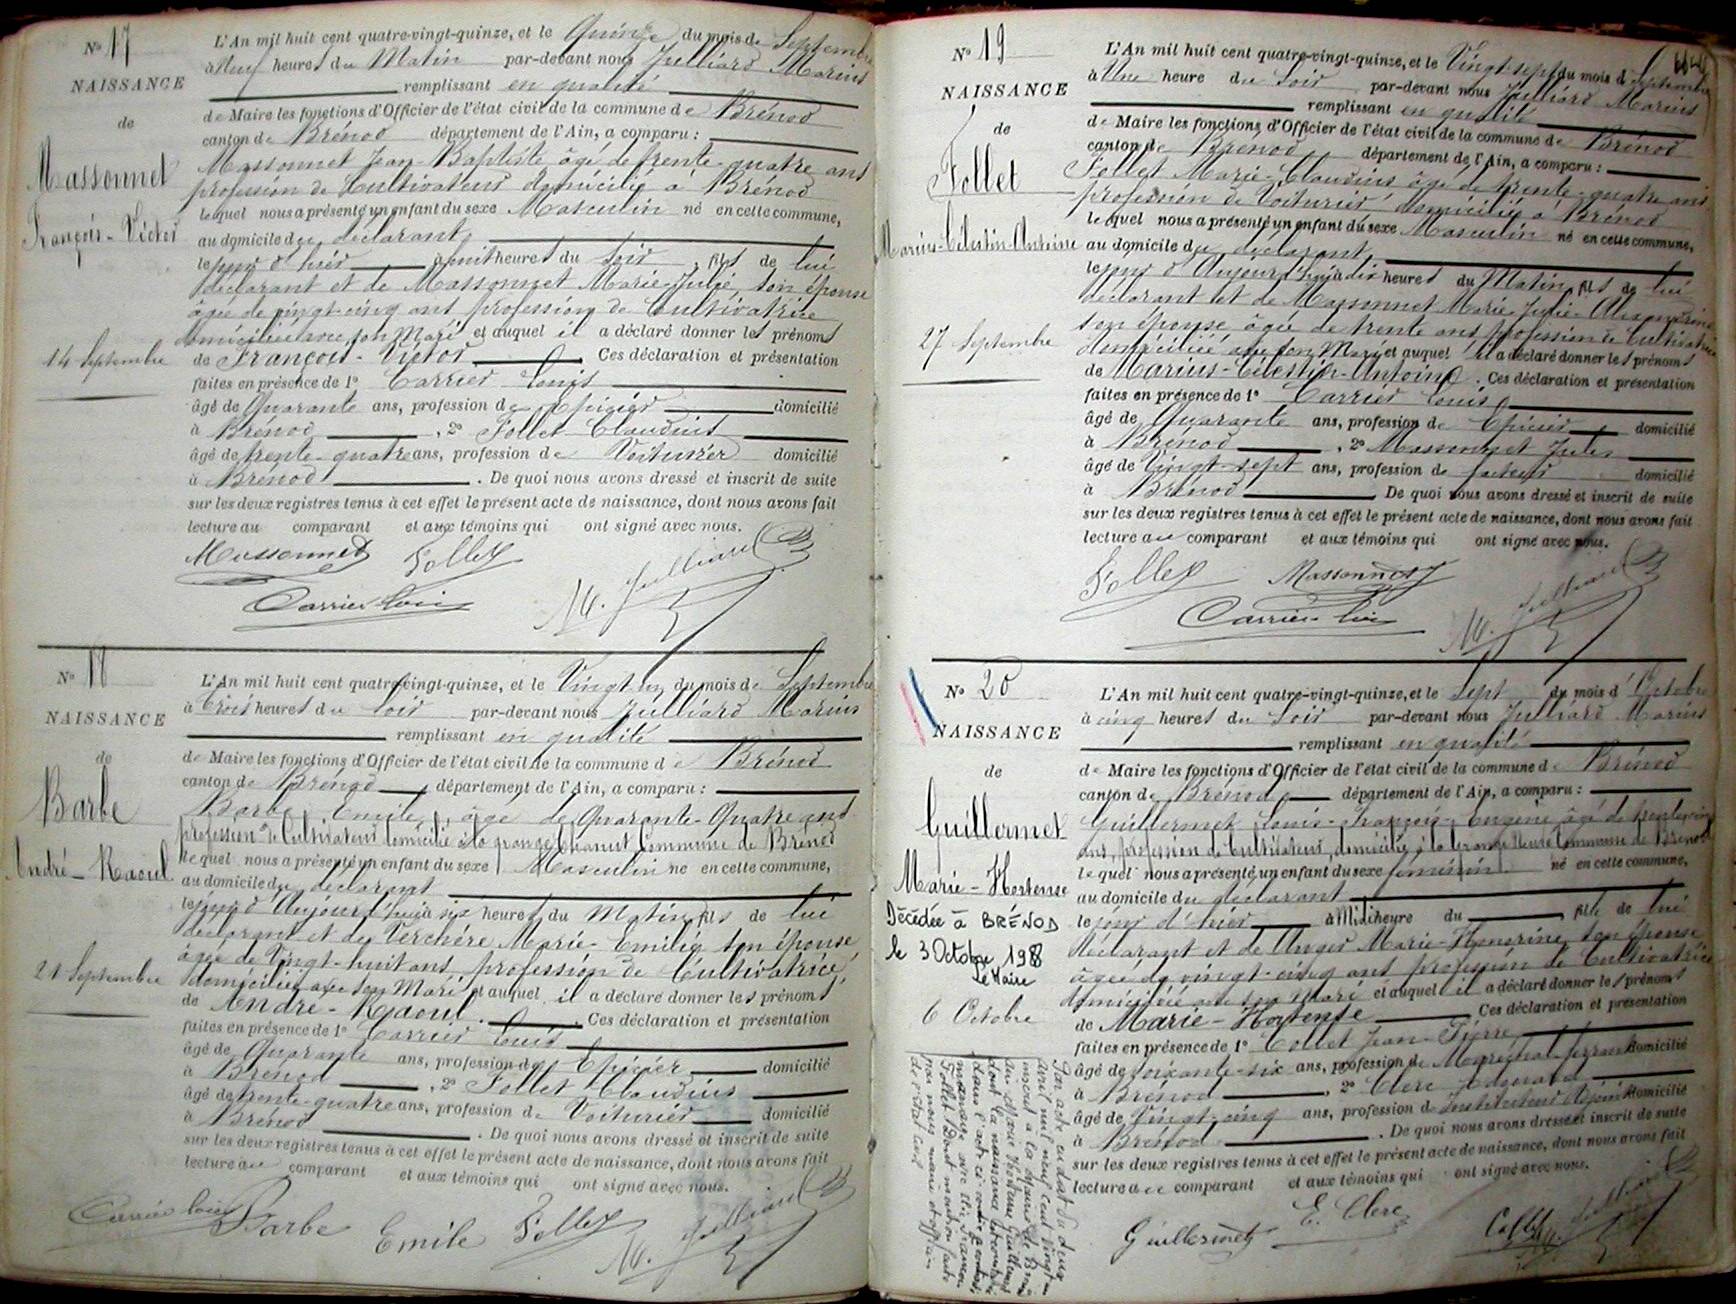 N° 17
NAISSANCE
de
Massonnet
François-Victor
14 Septembre
L'An mil huit cent quatre-vingt-quinze, et le Quinze du mois de Septembre
à Neuf heures du Matin par-devant nous Julliard Marius
remplissant en qualité
de Maire les fonctions d'Officier de l'état civil de la commune de Brénod
canton de Brénod département de l'Ain, a comparu :
Massonnet Jean-Baptiste âgé de trente-quatre ans
profession de Cultivateur domicilié à Brénod
lequel nous a présenté un enfant du sexe Masculin né en cette commune,
au domicile du déclarant
le jour d'hier à huit heures du Soir, fils de lui
déclarant et de Massonnet Marie-Julie, son épouse
âgée de vingt-cinq ans profession de Cultivatrice
domiciliée avec son Mari et auquel il a déclaré donner les prénoms
de François-Victor Ces déclaration et présentation
faites en présence de 1° Carrier Louis
âgé de Quarante ans, profession de Epicier domicilié
à Brénod, 2° Follet Claudius
âgé de trente-quatre ans, profession de Voiturier domicilié
à Brénod. De quoi nous avons dressé et inscrit de suite
sur les deux registres tenus à cet effet le présent acte de naissance, dont nous avons fait
lecture au comparant et aux témoins qui ont signé avec nous.
Massonnet Follet
Carrier Louis M. Julliard
N° 18
NAISSANCE
de
Barbe
André-Raoul
21 Septembre
L'An mil huit cent quatre-vingt-quinze, et le Vingt un du mois de Septembre
à Trois heures du Soir par-devant nous Julliard Marius
remplissant en qualité
de Maire les fonctions d'Officier de l'état civil de la commune de Brénod
canton de Brénod, département de l'Ain, a comparu :
Barbe Emile, âgé de Quarante-Quatre ans
profession de Cultivateur domicilié à la grange Chanut Commune de Brénod
lequel nous a présenté un enfant du sexe Masculin né en cette commune,
au domicile du déclarant
le jour d'Aujourd'hui à six heures du Matin fils de lui
déclarant et de Verchère Marie-Emilie son épouse
âgée de Vingt-huit ans, profession de Cultivatrice,
domiciliée avec son Mari et auquel il a déclaré donner les prénoms
de André-Raoul. Ces déclaration et présentation
faites en présence de 1° Carrier Louis
âgé de Quarante ans, profession de Epicier domicilié
à Brénod, 2° Follet Claudius
âgé de trente-quatre ans, profession de Voiturier domicilié
à Brénod. De quoi nous avons dressé et inscrit de suite
sur les deux registres tenus à cet effet le présent acte de naissance, dont nous avons fait
lecture au comparant et aux témoins qui ont signé avec nous.
Carrier Louis Barbe Emile Follet M. Julliard
N° 19
NAISSANCE
de
Follet
Marius-Célestin-Antoine
27 Septembre
L'An mil huit cent quatre-vingt-quinze, et le Vingt-sept du mois d Septembre
à Une heure du Soir par-devant nous Julliard Marius
remplissant en qualité
de Maire les fonctions d'Officier de l'état civil de la commune de Brénod
canton de Brénod département de l'Ain, a comparu :
Follet Marie-Claudius âgé de trente-quatre ans
profession de Voiturier domicilié à Brénod
lequel nous a présenté un enfant du sexe Masculin né en cette commune,
au domicile du déclarant
le jour d'Aujourd'hui à dix heures du Matin fils de lui
déclarant et de Massonnet Marie Julie-Alexandrine
son épouse âgée de trente ans profession de Cultivatrice
domiciliée avec son Mari et auquel il a déclaré donner les prénoms
de Marius-Célestin-Antoine. Ces déclaration et présentation
faites en présence de 1° Carrier Louis
âgé de Quarante ans, profession de Epicier domicilié
à Brénod, 2° Massonnet Jules
âgé de Vingt-sept ans, profession de facteur domicilié
à Brénod. De quoi nous avons dressé et inscrit de suite
sur les deux registres tenus à cet effet le présent acte de naissance, dont nous avons fait
lecture au comparant et aux témoins qui ont signé avec nous.
Follet Massonnet
Carrier Louis M. Julliard
N° 20
NAISSANCE
de
Guillermet
Marie-Hortense
Décédée à BRÉNOD
le 3 Octobre 1988
Le Maire
6 Octobre
L'An mil huit cent quatre-vingt-quinze, et le Sept du mois d'Octobre
à cinq heures du Soir par-devant nous Julliard Marius
remplissant en qualité
de Maire les fonctions d'Officier de l'état civil de la commune de Brénod
canton de Brénod, département de l'Ain, a comparu :
Guillermet Louis-François-Eugène âgé de trente
ans, profession de Cultivateur, domicilié à la Commune de Brénod
lequel nous a présenté un enfant du sexe féminin né en cette commune,
au domicile du déclarant
le jour d'hier à Midi heure du, fille de lui
déclarant et de Marie-Honorine son épouse
âgée de vingt-cinq ans profession de Cultivatrice
domiciliée avec son Mari et auquel il a déclaré donner les prénoms
de Marie-Hortense Ces déclaration et présentation
faites en présence de 1° Collet Jean-Pierre
âgé de soixante-six ans, profession de Maréchal-ferrant domicilié
à Brénod, 2° Clerc
âgé de Vingt-cinq ans, profession de Instituteur Adjoint domicilié
à Brénod. De quoi nous avons dressé et inscrit de suite
sur les deux registres tenus à cet effet le présent acte de naissance, dont nous avons fait
lecture au comparant et aux témoins qui ont signé avec nous.
Guillermet E. Clerc Collet M. Julliard
Par acte en date du deux
avril mil neuf cent vingt
inscrit à la
Marie Hortense Guillermet
dont la naissance est constatée
dans l'acte ci-contre a contracté
mariage avec
Follet. Dont mention faite
par nous maire et officier
de l'état civil